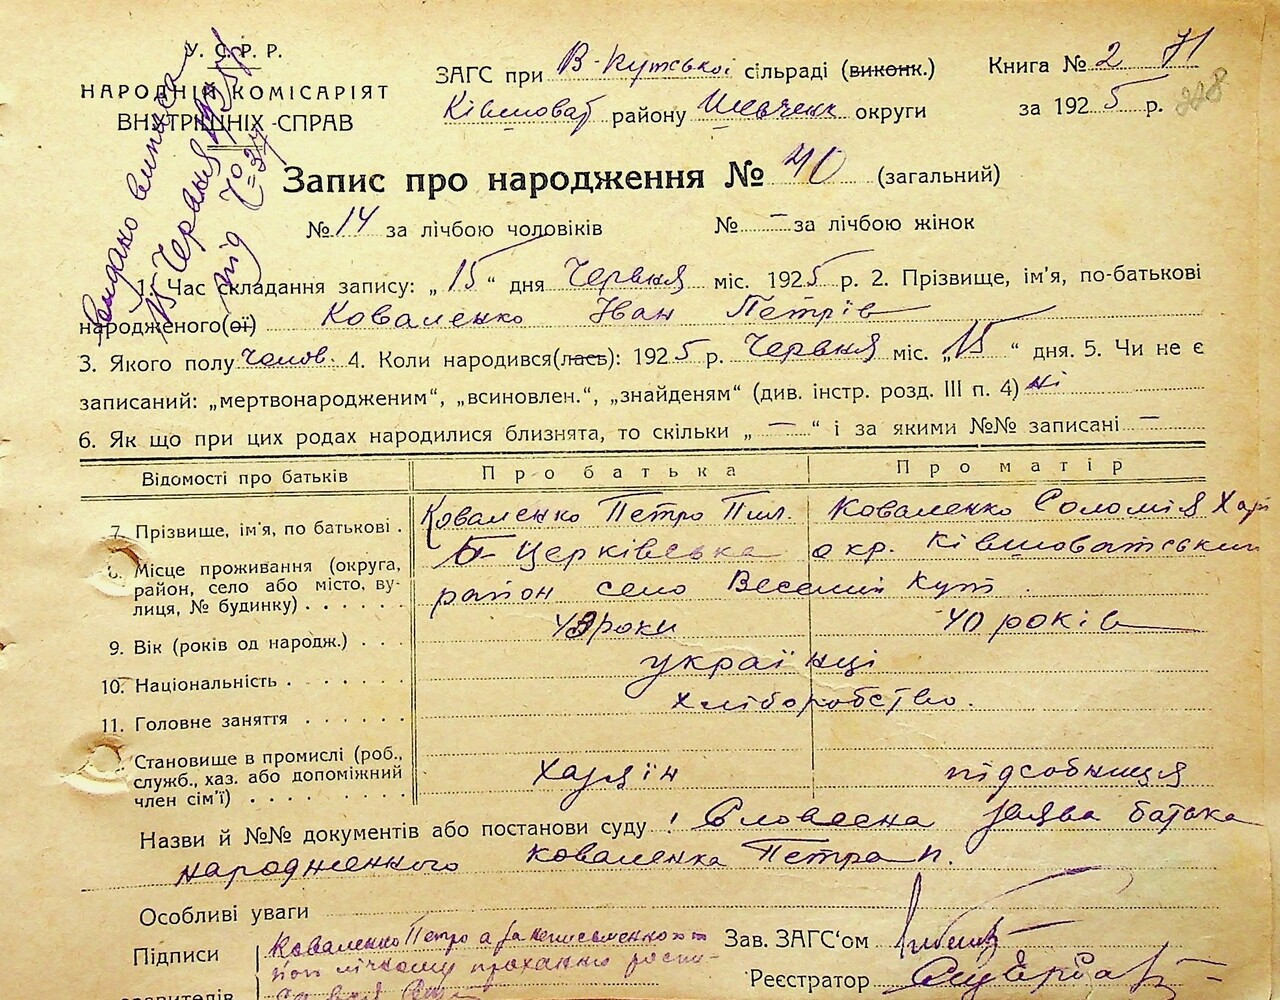 У. С. Р. Р.
НАРОДНІЙ КОМІСАРІЯТ
ВНУТРІШНІХ СПРАВ
ЗАГС при В-Кутської сільраді (виконк.) Книга № 2 71
Ківшоват району Шевченк округи за 1925 р. 228
Запис про народження № 40 (загальний)
№ 14 за лічбою чоловіків № — за лічбою жінок
Видано виписа
15 Червня 1925 р
під № 37
1. Час складання запису: „15“ дня Червня міс. 1925 р. 2. Прізвище, ім'я, по-батькові
народженого(ої) Коваленко Іван Петрів
3. Якого полу Чолов. 4. Коли народився(лась): 1925 р. Червня міс. „15“ дня. 5. Чи не є
записаний: „мертвонародженим“, „всиновлен.“, „знайденям“ (див. інстр. розд. III п. 4) ні
6. Як що при цих родах народилися близнята, то скільки „—“ і за якими №№ записані —
Відомості про батьків Про батька Про матір
7. Прізвище, ім'я, по батькові . Коваленко Петро Пил. Коваленко Соломія Хар
8. Місце проживання (округа, Б Церківська окр. Ківшоватський
район, село або місто, ву-
лиця, № будинку) . . . . . . район село Веселий Кут .
9. Вік (років од народж.) . . . 43 роки 40 років
10. Національність . . . . . . українці
11. Головне заняття . . . . . . хліборобство.
Становище в промислі (роб.,
служб., хаз. або допоміжний Хазяїн підсобниця
член сім'ї) . . . . . . . . .
Назви й №№ документів або постанови суду : Словесна заява батька
народженного Коваленка Петра П.
Особливі уваги
Підписи Коваленко Петро а за неписьменного Зав. ЗАГС'ом
по лічному проханню роспи-
Реєстратор
заявителів